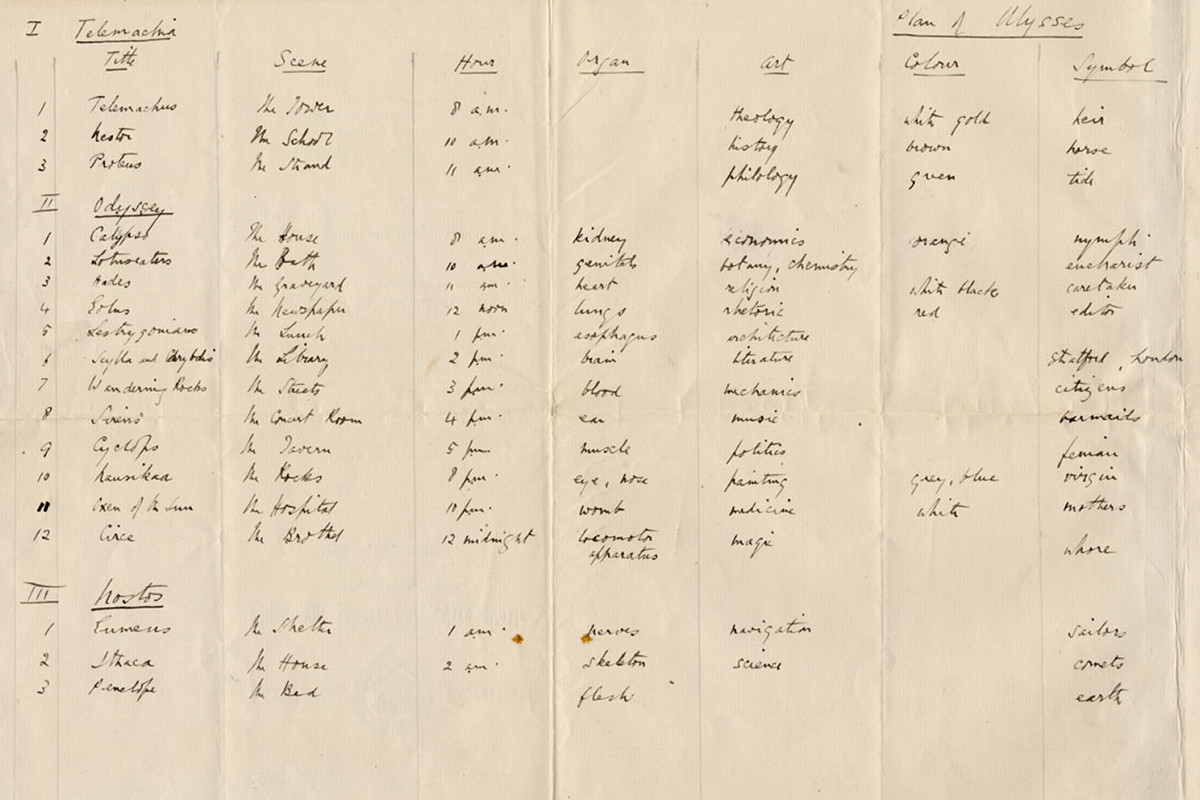 Plan of Ulysses
I Telemachia
Title Scene Hour Organ Art Colour Symbol
1 Telemachus The Tower 8 a.m. theology white gold heir
2 Nestor The School 10 a.m. history brown horse
3 Proteus The Strand 11 a.m. philology green tide
II Odyssey
1 Calypso The House 8 am. kidney economics orange nymph
2 Lotuseaters The Bath 10 a.m. genitals botany, chemistry eucharist
3 Hades The Graveyard 11 am. heart religion white black caretaker
4 Eolus The Newspaper 12 noon lungs rhetoric red editor
5 Lestrygonians The Lunch 1 pm. esophagus architecture
6 Scylla and Charybdis The Library 2 pm. brain literature Stratford, London
7 Wandering Rocks The Streets 3 pm. blood mechanics citizens
8 Sirens The Concert Room 4 pm. ear music barmaids
9 Cyclops The Tavern 5 pm. muscle politics fenian
10 Nausikaa The Rocks 8 pm. eye, nose painting grey, blue virgin
11 Oxen of the Sun The Hospital 10 pm. womb medicine white mothers
12 Circe The Brothel 12 midnight locomotor magic whore
apparatus
III Nostos
1 Eumeus The Shelter 1 am. nerves navigation sailors
2 Ithaca The House 2 am. skeleton science comets
3 Penelope The Bed flesh earth